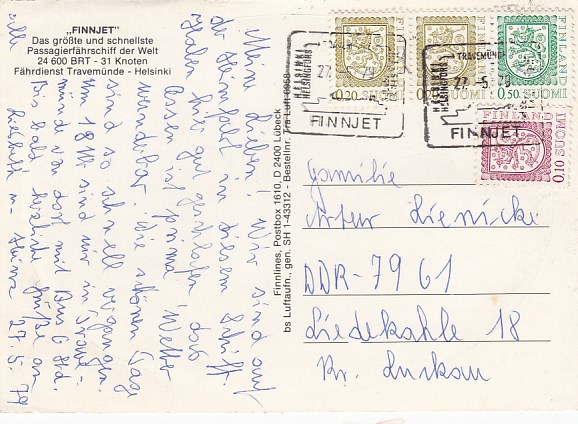 „FINNJET"
Das größte und schnellste
Passagierfährschiff der Welt
24 600 BRT - 31 Knoten
Fährdienst Travemünde - Helsinki
Meine Lieben! Wir sind auf
der Heimfahrt in diesem Schiff.
Haben hier gut geschlafen, das
Essen ist prima, Wetter
wunderbar. Die schönen Tage
sind so schnell vergangen.
Um 18 Uhr sind wir in Trave-
münde von dort mit Bus 6 Std.
Bis bald herzliche Grüße an
alle
Liselotte u. Heinz
27.5.79
Finnlines, Postbox 1610, D 2400 Lübeck
bs Luftaufn., gen. SH 1-43312 - Bestellnr. Tra Luft 0958
0.20 SUOMI
SUOMI
FINLAND
0.50 SUOMI
FINLAND
0.10 SUOMI
HELSINKI
HELSINGFORS
27. 5. 79
FINNJET
TRAVEMÜNDE
HELSINKI
HELSINGFORS
27. 5. 79
FINNJET
Familie
Artur Lienicke
DDR-7961
Liedekahle 18
Kr. Luckau